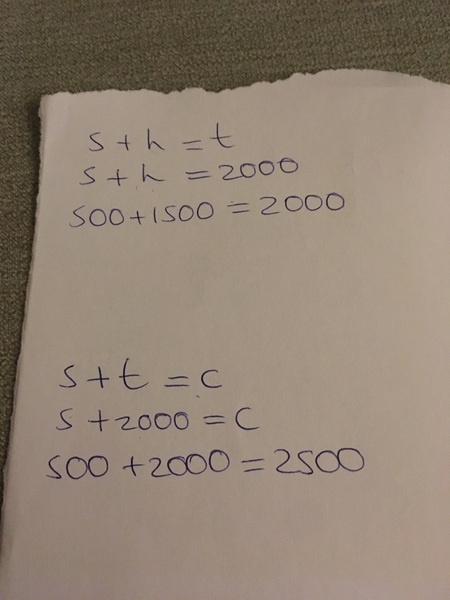 s + h = t
s + h = 2000
500 + 1500 = 2000
s + t = c
s + 2000 = c
500 + 2000 = 2500